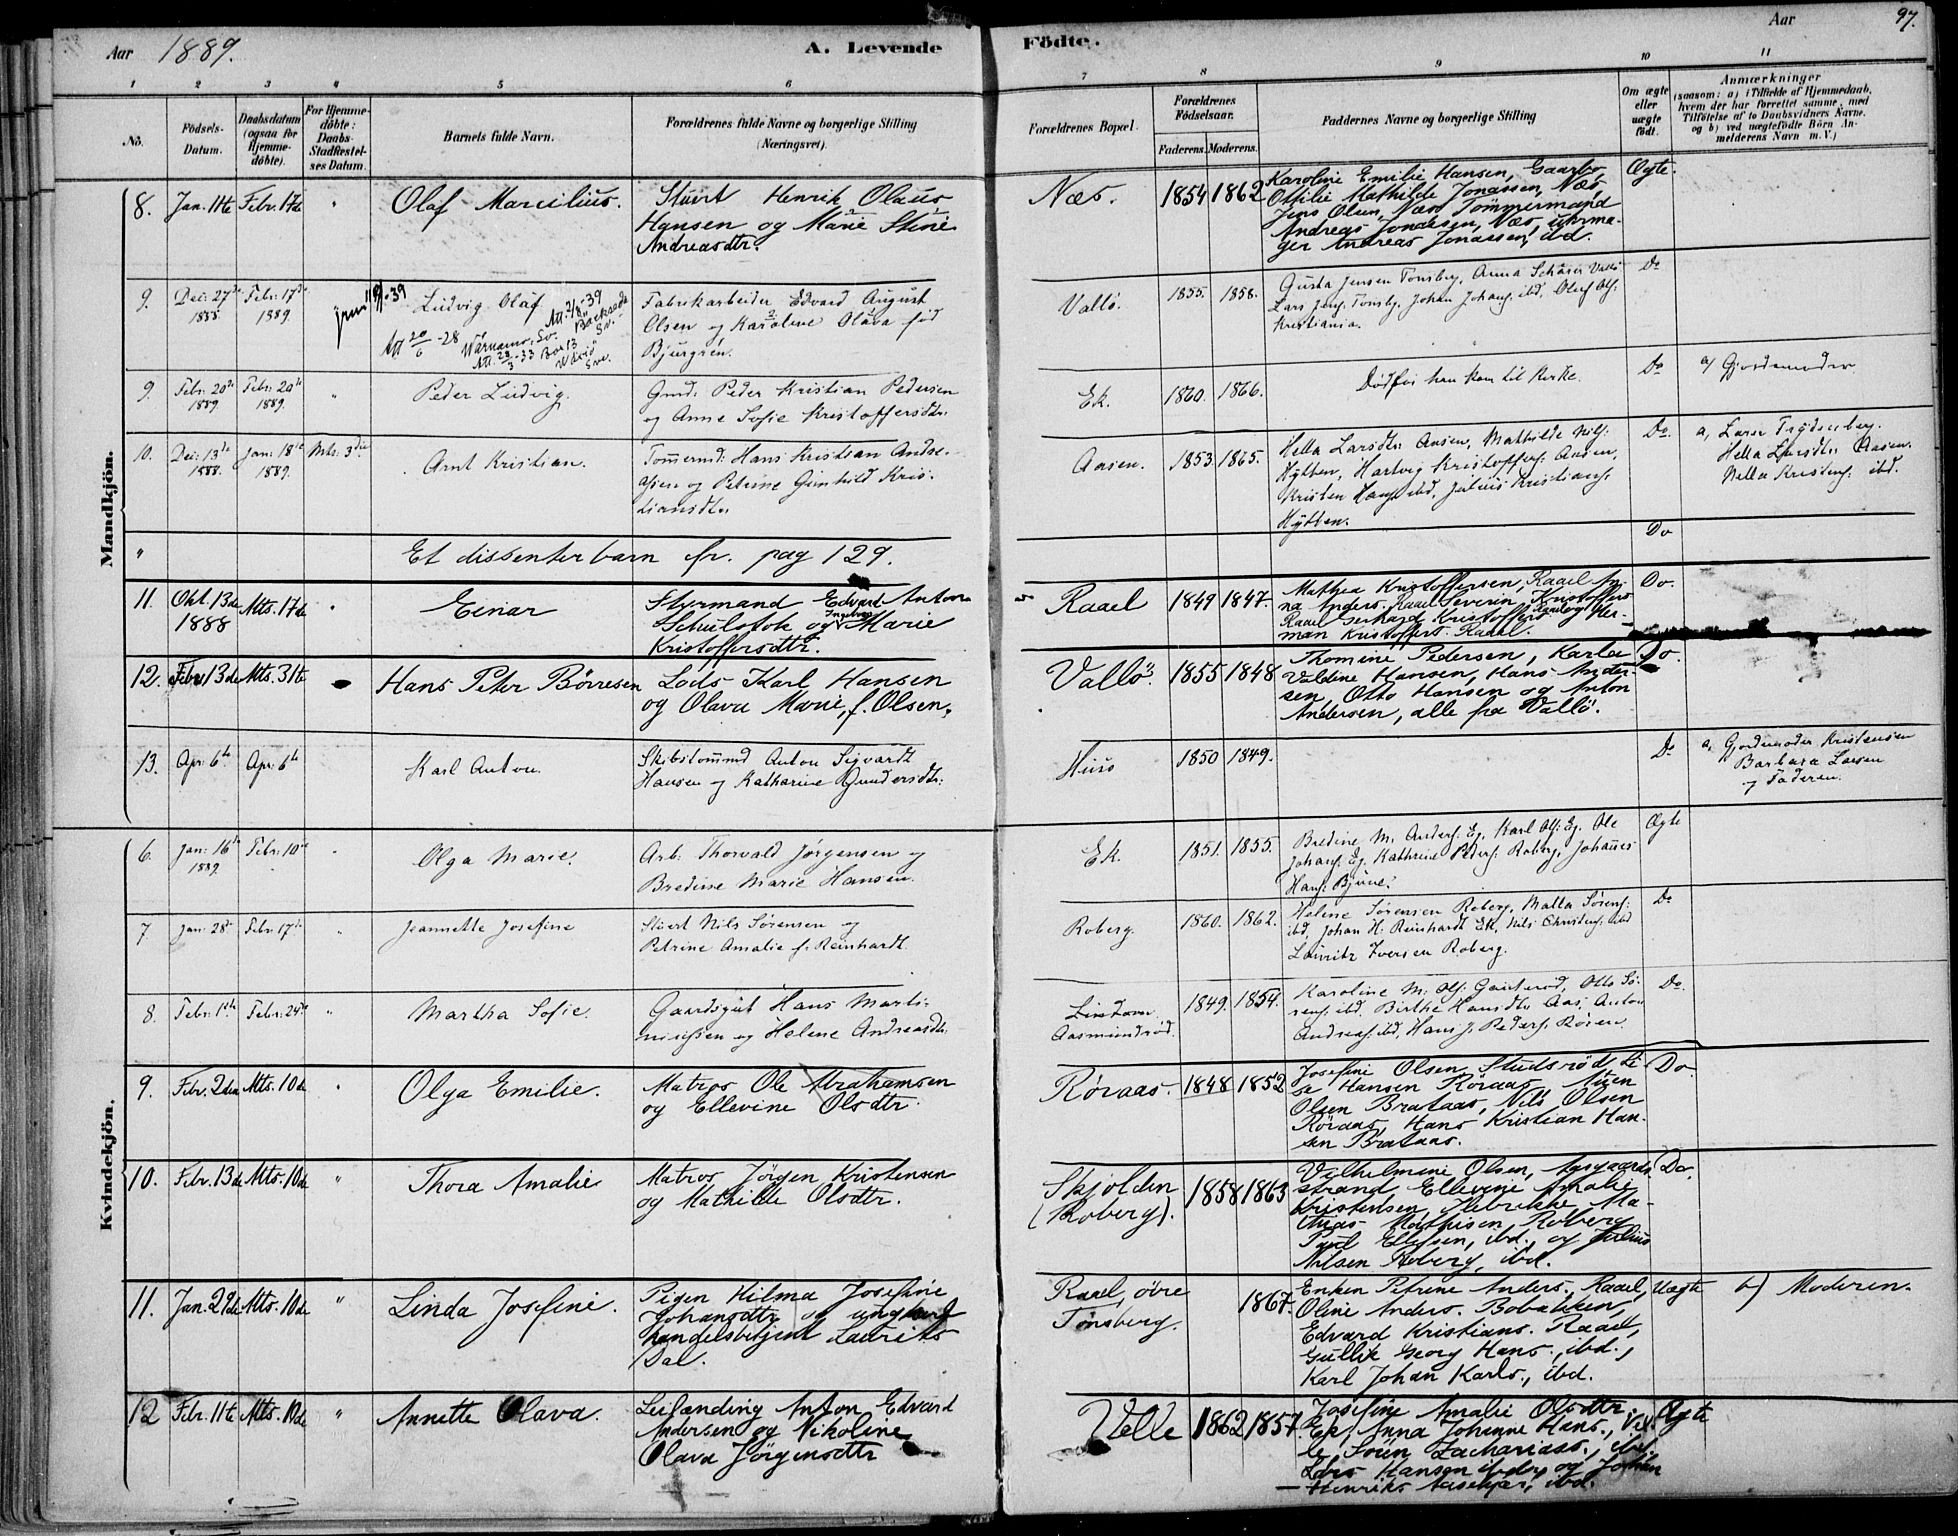 Aar 1889.
A. Levende Födte.
Aar 97.
1 2 3 4 5 6 7 8 9 10 11
No.
Födsels-Datum.
Daabsdatum (ogsaa for Hjemme-döbte).
For Hjemme-döbte: Daabs-Stadfæstel-ses Datum.
Barnets fulde Navn.
Forældrenes fulde Navne og borgerlige Stilling (Næringsvei).
Forældrenes Bopæl.
Forældrenes Födselsaar.
Faderens. Moderens.
Faddernes Navne og borgerlige Stilling
Om ægte eller uægte födt.
Anmærkninger
(saasom: a) i Tilfælde af Hjemmedaab,
hvem der har forrettet samme, med
Tilföielse af to Daabsvidners Navne.
og b) ved uægtefödte Börn An-
melderens Navn m.V.)
Mandkjön.
8. Jan. 11te Febr. 17de " Olaf Marcilius.
Stuert Henrik Olaus
Hansen og Marie Stine
Andreasdtr.
Næs. 1854 1862
Karoline Emilie Hansen, Gaarbo,
Ottilie Mathilde Jonassen, Næs,
Jens Olsen, Næs Tömmermand
Andreas Jonassen, Næs, uhrma-
ger Andreas Jonassen, ibd.
Ægte.
9. Dei: 27de 1888. Febr: 17de 1889. Ludvig Olaf
Fabrikarbeider Edvard August
Olsen og Karoline Olava fød
Bjurgrén.
Vallö. 1855. 1858.
Gusta Jensen Tonsberg, Anna
Lars Jens: Tonsbg, Johan Johans: ibd, Oluf Ols:
Kristiania.
Do
9. Febr: 20de 1889. Febr: 20de 1889. " Peder Ludvig.
Gmd: Peder Kristian Pedersen
og Anne Sofie Kristoffersdtr:
Ek. 1860. 1866.
Død før han kom til Kirke.
Do a) Gjordemoder
10. Dei: 13de 1888. Jan: 18de 1889. Mts: 3die Arnt Kristian.
Tømmermd: Hans Kristian Andre-
asen og Petrine Gunhild Kris-
tiansdtr:
Aasen. 1853. 1865.
Hella Larsdtr: Aasen, Mathilde Nils:
Hytten, Hartvig Kristoffers: Aasen,
Kristen Hans: ibd, Julius Kristians:
Hytten.
Do. a, Lærer Frydenberg.
Hella Larsdtr: Aasen.
Nella Kristens: ibd.
" Et dissenterbarn fr. pag 129. Do
11. Okt. 13de 1888 Mts. 17de " Einar
Styrmand Edvard Anton
Schulstok og Ingeborg Marie
Kristoffersdtr.
Raael 1849 1847.
Mathea Kristoffersen, Raael An-
na Anders. Raael Severin Kristoffers
Raael Gerhard Kristoffers. Raael og Her-
man Kristoffers. Raael.
Do.
12. Febr. 13de Mts. 31te Hans Peter Børresen
Lods Karl Hansen
og Olava Marie, f. Olsen.
Vallö. 1855 1848
Thomine Pedersen, Karla
Valdine Hansen, Hans Ander-
sen, Otto Hansen og Anton
Andersen, alle fra Vallö.
Do.
13. Apr: 6te Apr: 6te Karl Anton.
Skibstømmd Anton Sigvardt
Hansen og Katharine Gundersdtr:
Huso 1850 1849.
Do a, Gjordemoder Kristensen
Barbara Larsen
og Faderen.
Kvindekjön.
6. Jan: 16de 1889. Febr: 10de " Olga Marie.
Arb: Thorvald Jørgensen og
Bredine Marie Hansen.
Ek. 1851. 1855.
Bredine M. Anders: Eg, Karl Ols: Eg, Ole
Johans: Eg, Kathrine Peders: Roberg, Johannes
Hans: Bjune.
Ægte
7. Jan: 28de Febr: 17de " Jeannette Josefine
Stuert Nils Sørensen og
Petrine Amalie f: Reinhardt.
Roberg. 1860. 1862.
Helene Sørensen Roberg, Malla Sørens:
ibd, Johan H: Reinhardt Ek, Nils Christens: ibd
Lauritz Iversen Roberg.
Do
8. Febr: 1ste Febr: 24de " Martha Sofie.
Gaardsgut Hans Marti-
niussen og Helene Andreasdtr.
Aasmundrød. 1849. 1854.
Karoline M: Ols: Gauterød, Otto Sö-
rens: ibd, Birthe Hansdtr Aas, Anton
Andreas: ibd, Hans J. Peders: Rören.
Do.
9. Febr. 2den Mts. 10de " Olga Emilie.
Matros Ole Abrahamsen
og Ellevine Olsdtr.
Röraas. 1848 1852
Josefine Olsen Studsrød, Li-
se Hansen Röraas, Stien
Olsen Brataas, Nils Olsen
Röraas, Hans Kristian Han-
sen Brataas.
Do.
10. Febr. 13de Mts. 10de " Thora Amalie
Matros Jörgen Kristensen
og Mathilde Olsdtr.
Skjolden (Roberg). 1858 1863
Vilhelmine Olsen, Aasgaard-
strand Ellevine Amalie
Kristensen, Ma-
thias Mathisen, Roberg
Paul Ellefsen, ibd., og Julius
Nilsen Roberg, ibd.
Do.
11. Jan. 29de Mts. 10de " Linda Josefine.
Pigen Hilma Josefine
Johansdtr og ungkarl
handelsbetjent Laurits
Dal.
Raael, övre
Tønsberg. 1867.
Enken Petrine Anders. Raael,
Oline Anders. Bobakken,
Edvard Kristians. Raael,
Gullik Georg Hans., ibd.,
Karl Johan Karls., ibd.
Uægte b) Moderen.
12 Febr. 11te Mts. 10de " Annette Olava.
Leilænding Anton Edvard
Andersen og Nikoline
Olava Jörgensdtr
Velle 1862 1857.
Josefine Amalie Olsdtr.
Ek, Anna Johanne Hans., Vel-
le, Sören Zacharias., ibd.
Lars Hansen ibd., og Johan
Henriks. ibd.
Ægte